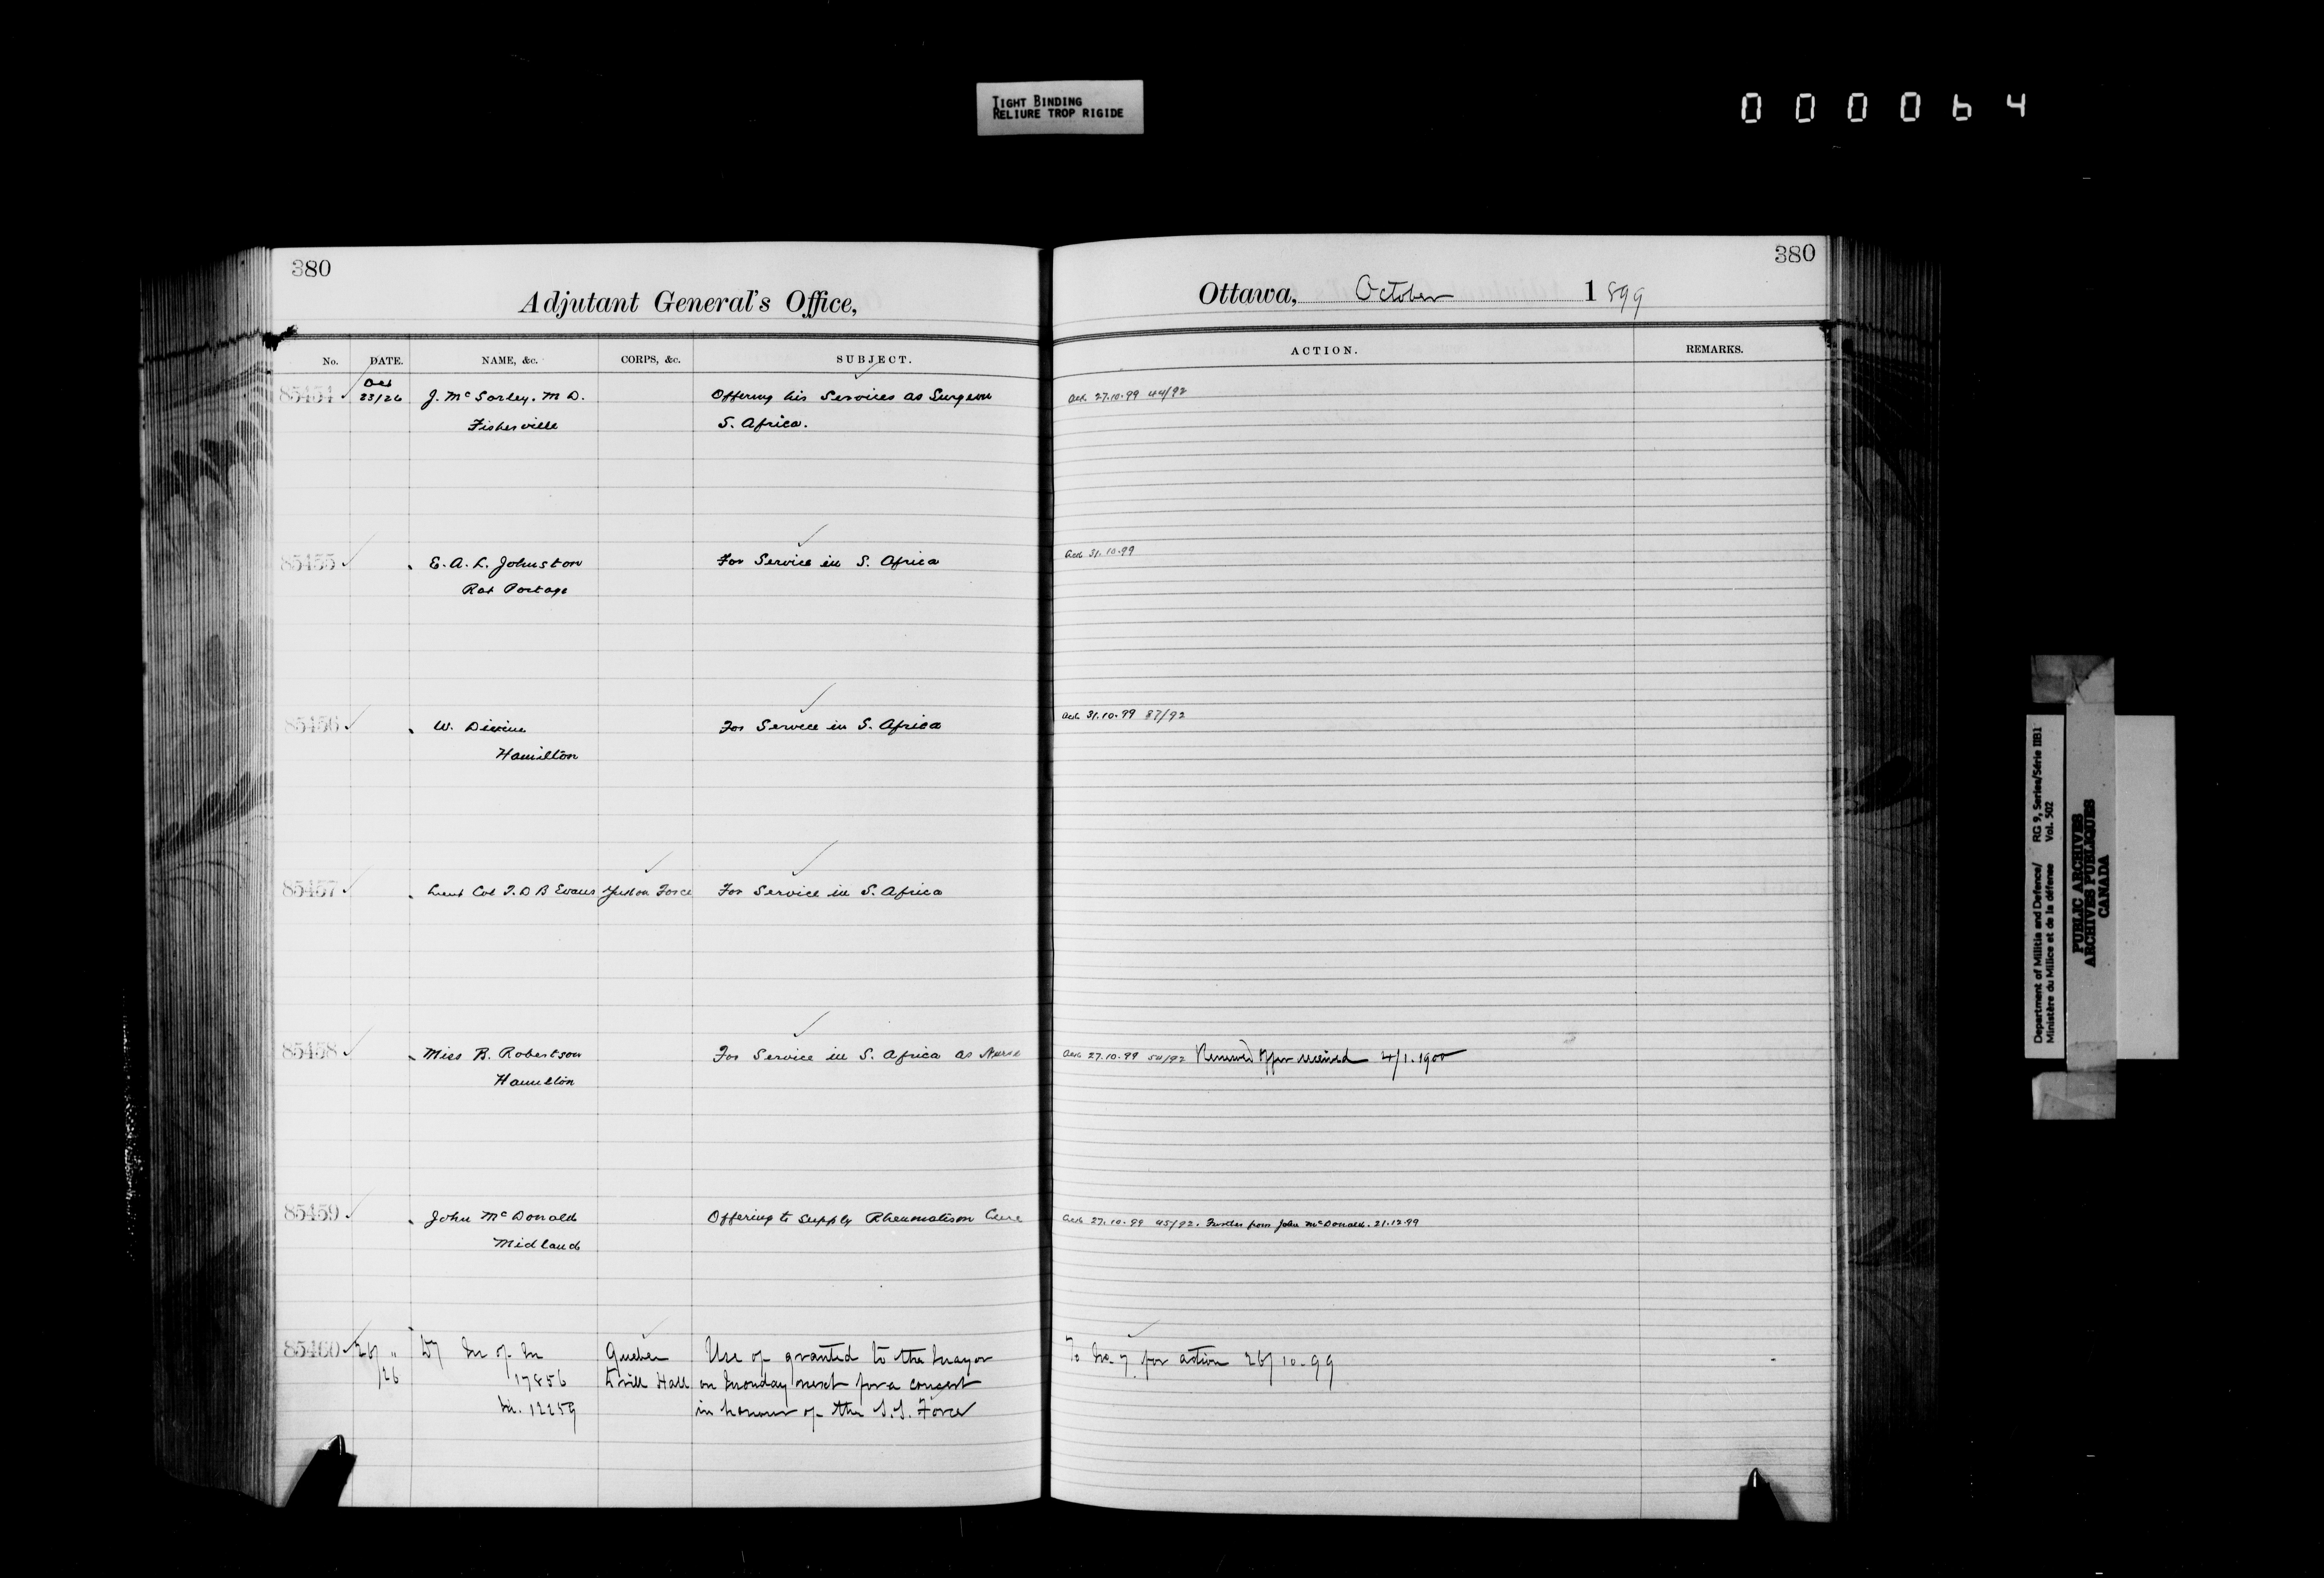 TIGHT BINDING
RELIURE TROP RIGIDE
000064
380
Adjutant General's Office,
No. DATE. NAME, &c. CORPS, &c. SUBJECT.
85454 Oct 23/26 J. McSorley. M D. Offering his Services as Surgeon
Fisherville S. Africa.
85455 E. A. L. Johnston For Service in S. Africa
Rat Portage
85456 W. Divine For Service in S. Africa
Hamilton
85457 Lieut Col T. D B Evans Yukon Force For Service in S. Africa
85458 Miss B. Robertson For Service in S. Africa as Nurse
Hamilton
85459 John McDonald Offering to supply Rheumatism Cure
Midland
85460 26/26 " Dy M of M Quebec Use of granted to the Mayor
17856 Drill Hall on Monday next for a concert
M. 12259 in honour of the S.S. Force
380
Ottawa, October 1899
ACTION. REMARKS.
Ack. 27.10.99 44/92
Ack 31.10.99
Ack. 31.10.99 87/92
Ack. 27.10.99 54/92 Renewed offer received 4/1.1900
Ack 27.10.99 45/92. Further from John McDonald. 21.12.99
To No. 7 for action 26/10.99
Department of Militia and Defence/ RG 9, Series/Série IIB1
Ministère du Milice et de la défense Vol. 502
PUBLIC ARCHIVES
ARCHIVES PUBLIQUES
CANADA